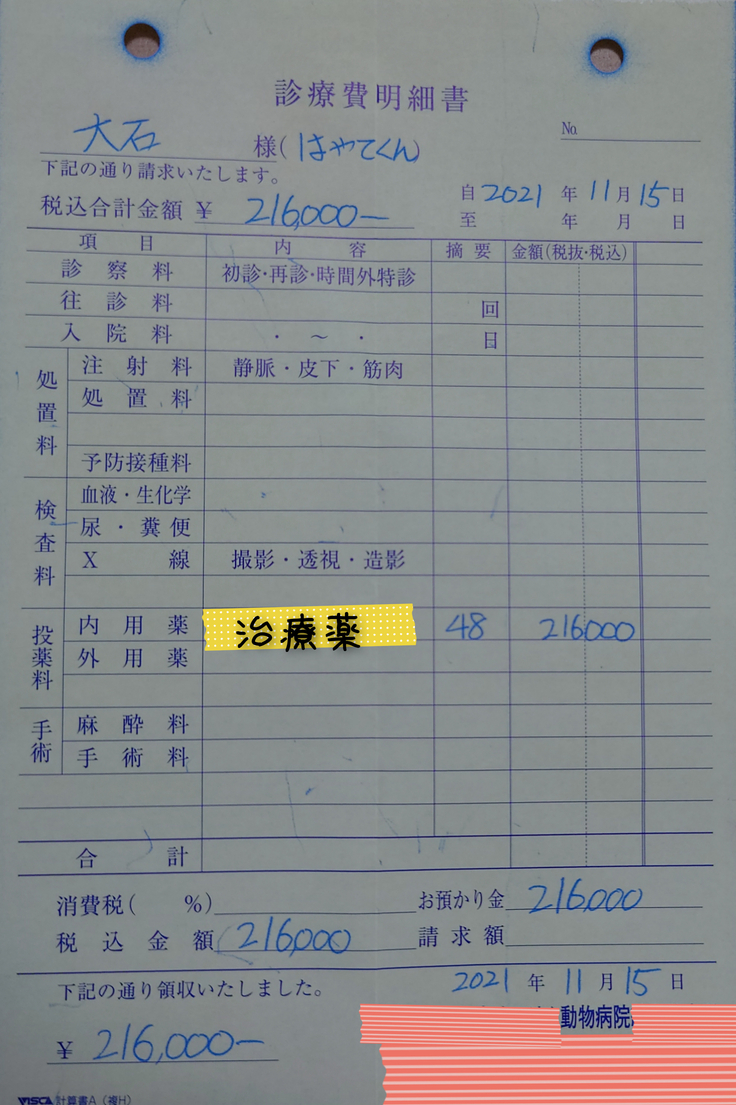 診療費明細書
大石 様(はやてくん) No.
下記の通り請求いたします。
税込合計金額 ¥ 216,000-
自 2021 年 11 月 15 日
至 年 月 日
項目 内容 摘要 金額(税抜・税込)
診察料 初診・再診・時間外特診
往診料 回
入院料 ・ ~ ・ 日
処置料
注射料 静脈・皮下・筋肉
処置料
予防接種料
検査料
血液・生化学
尿・糞便
X線 撮影・透視・造影
投薬料
内用薬 治療薬 48 216000
外用薬
手術
麻酔料
手術料
合計
消費税( %) お預かり金 216,000
税込金額 216000 請求額
2021 年 11 月 15 日
下記の通り領収いたしました。
動物病院
¥ 216,000-
VISCA 計算書A(複H)